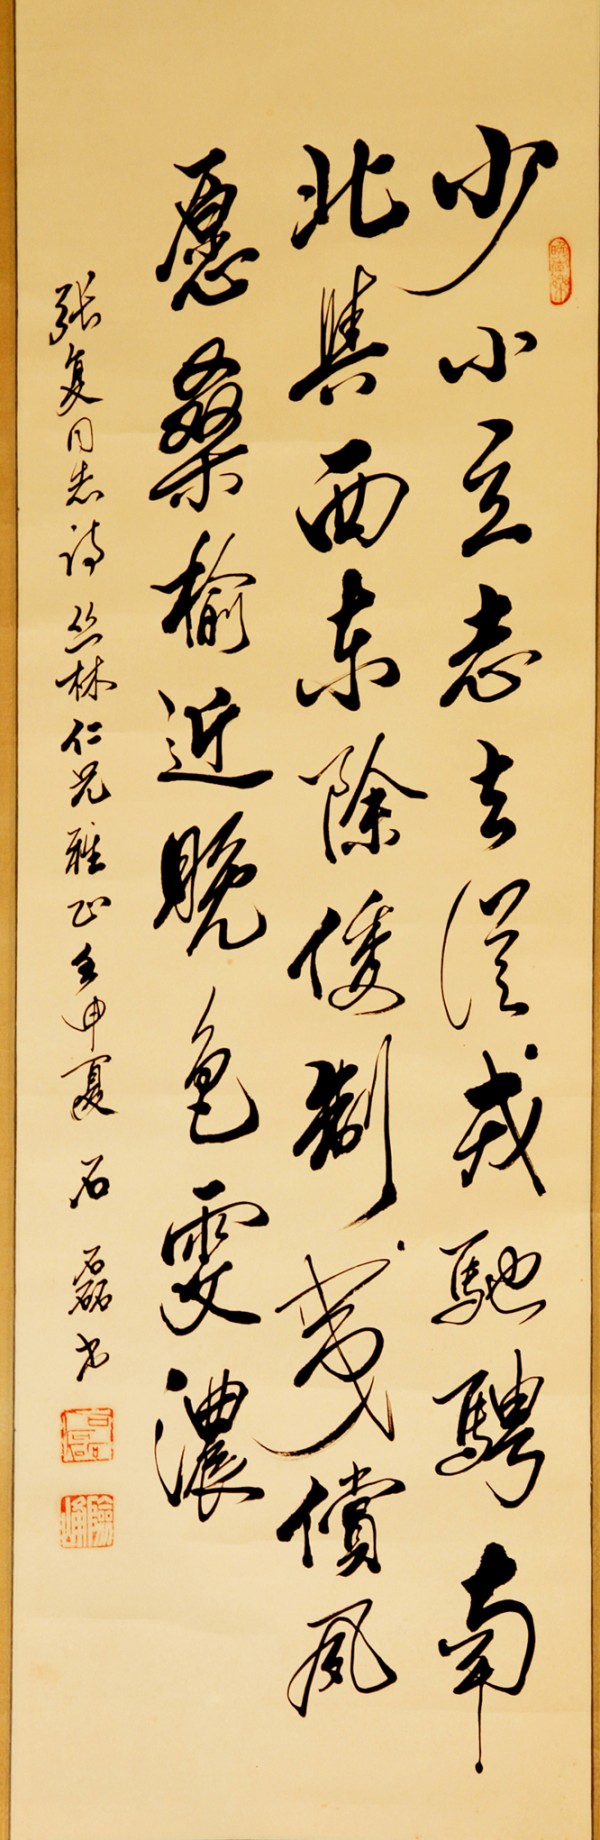 少小立志去從戎馳騁南
北與西東除倭制償夙
愿桑榆近晚色雯濃
張复同志詩丛林仁兄雅正壬申夏石磊书
石磊
險峰